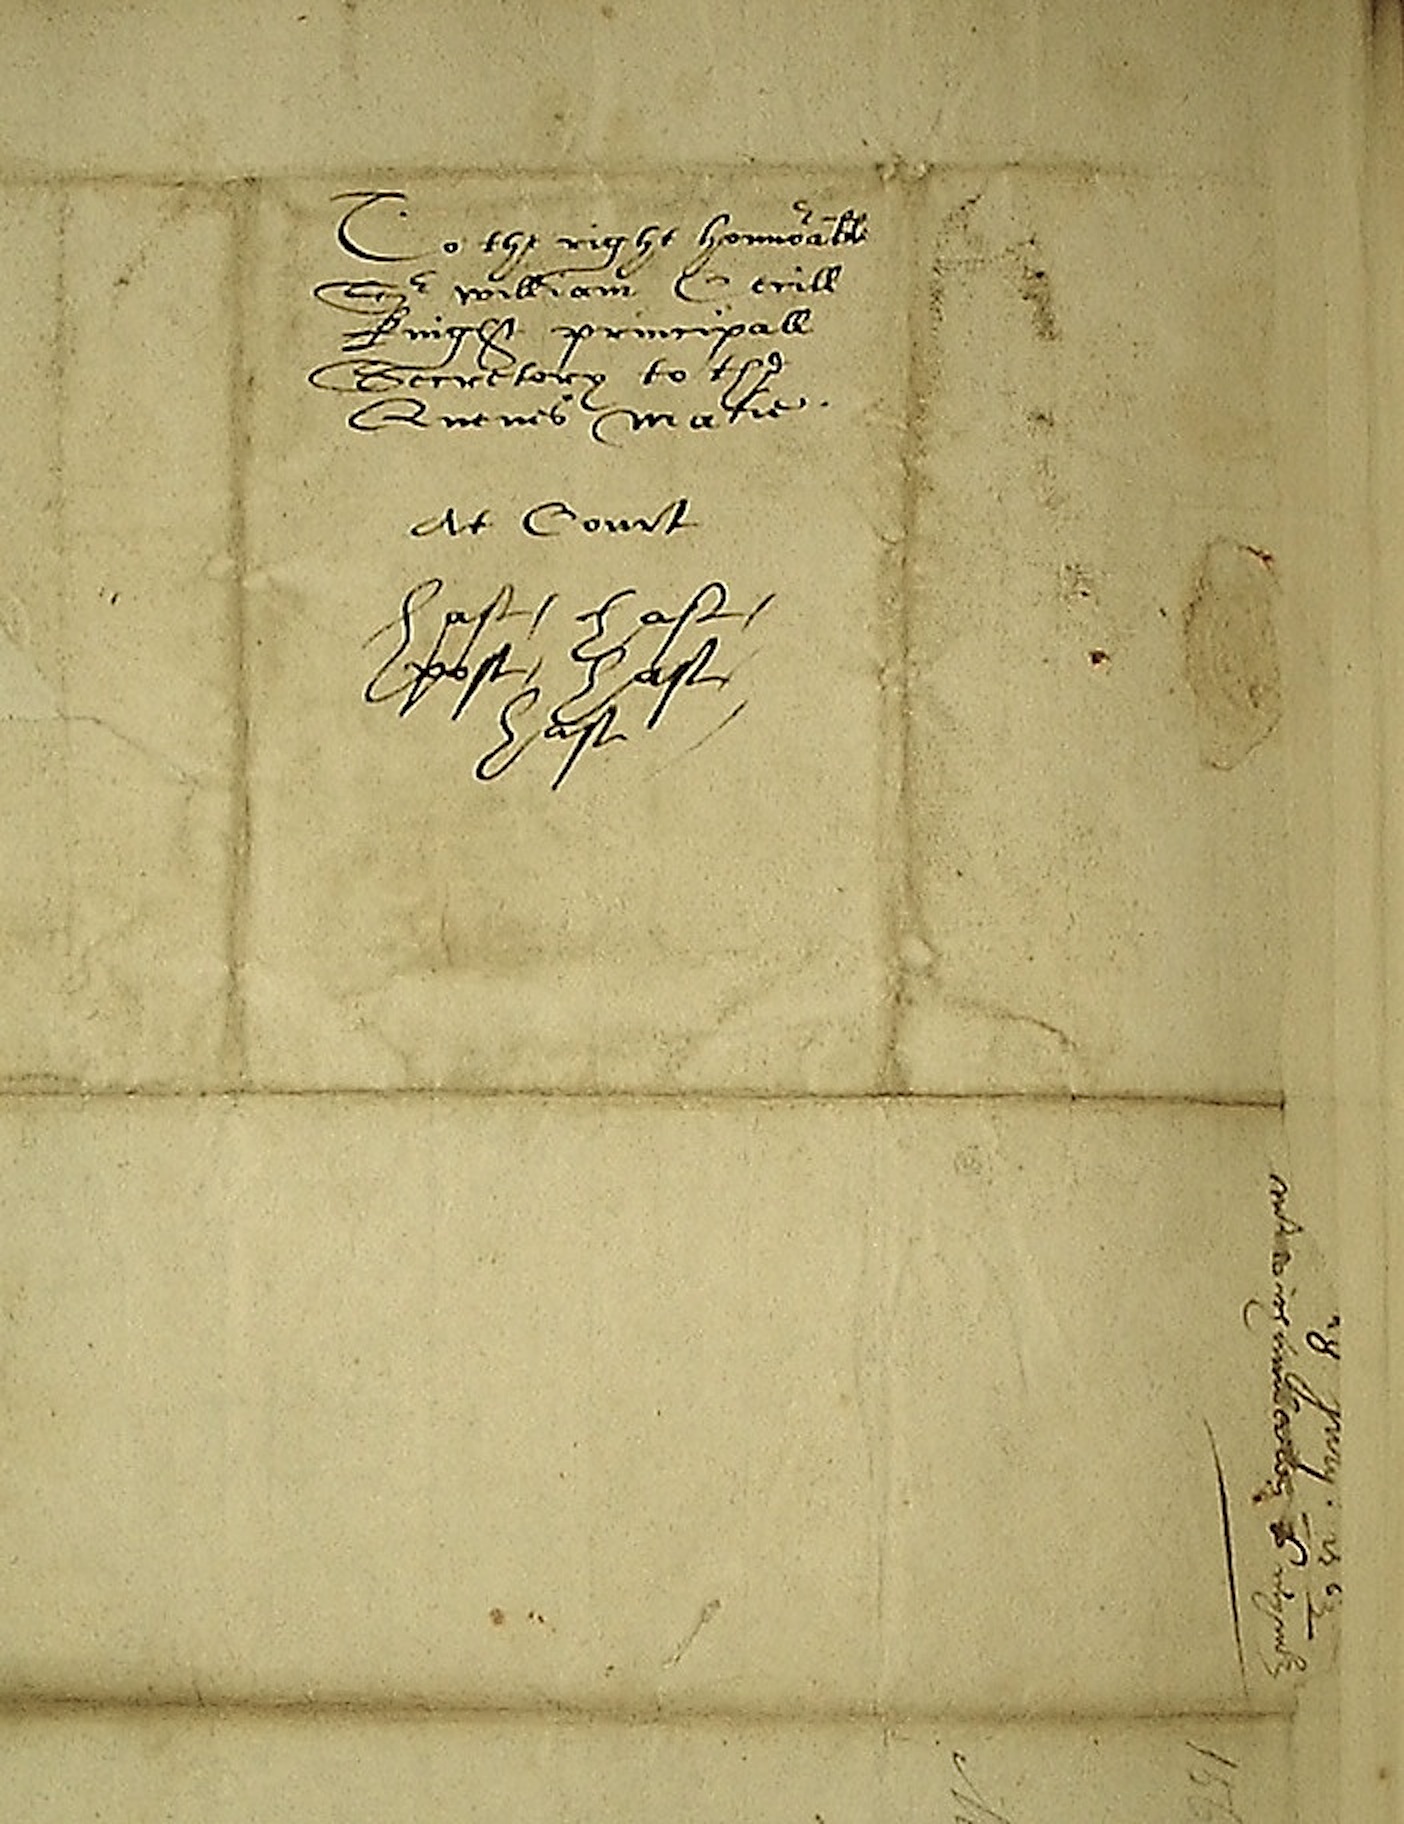 To the right honnorable
Sr william Cecill
knight principall
Secretory to the
Quenes matie.
At Court
hast / hast /
post / hast /
hast /
1563